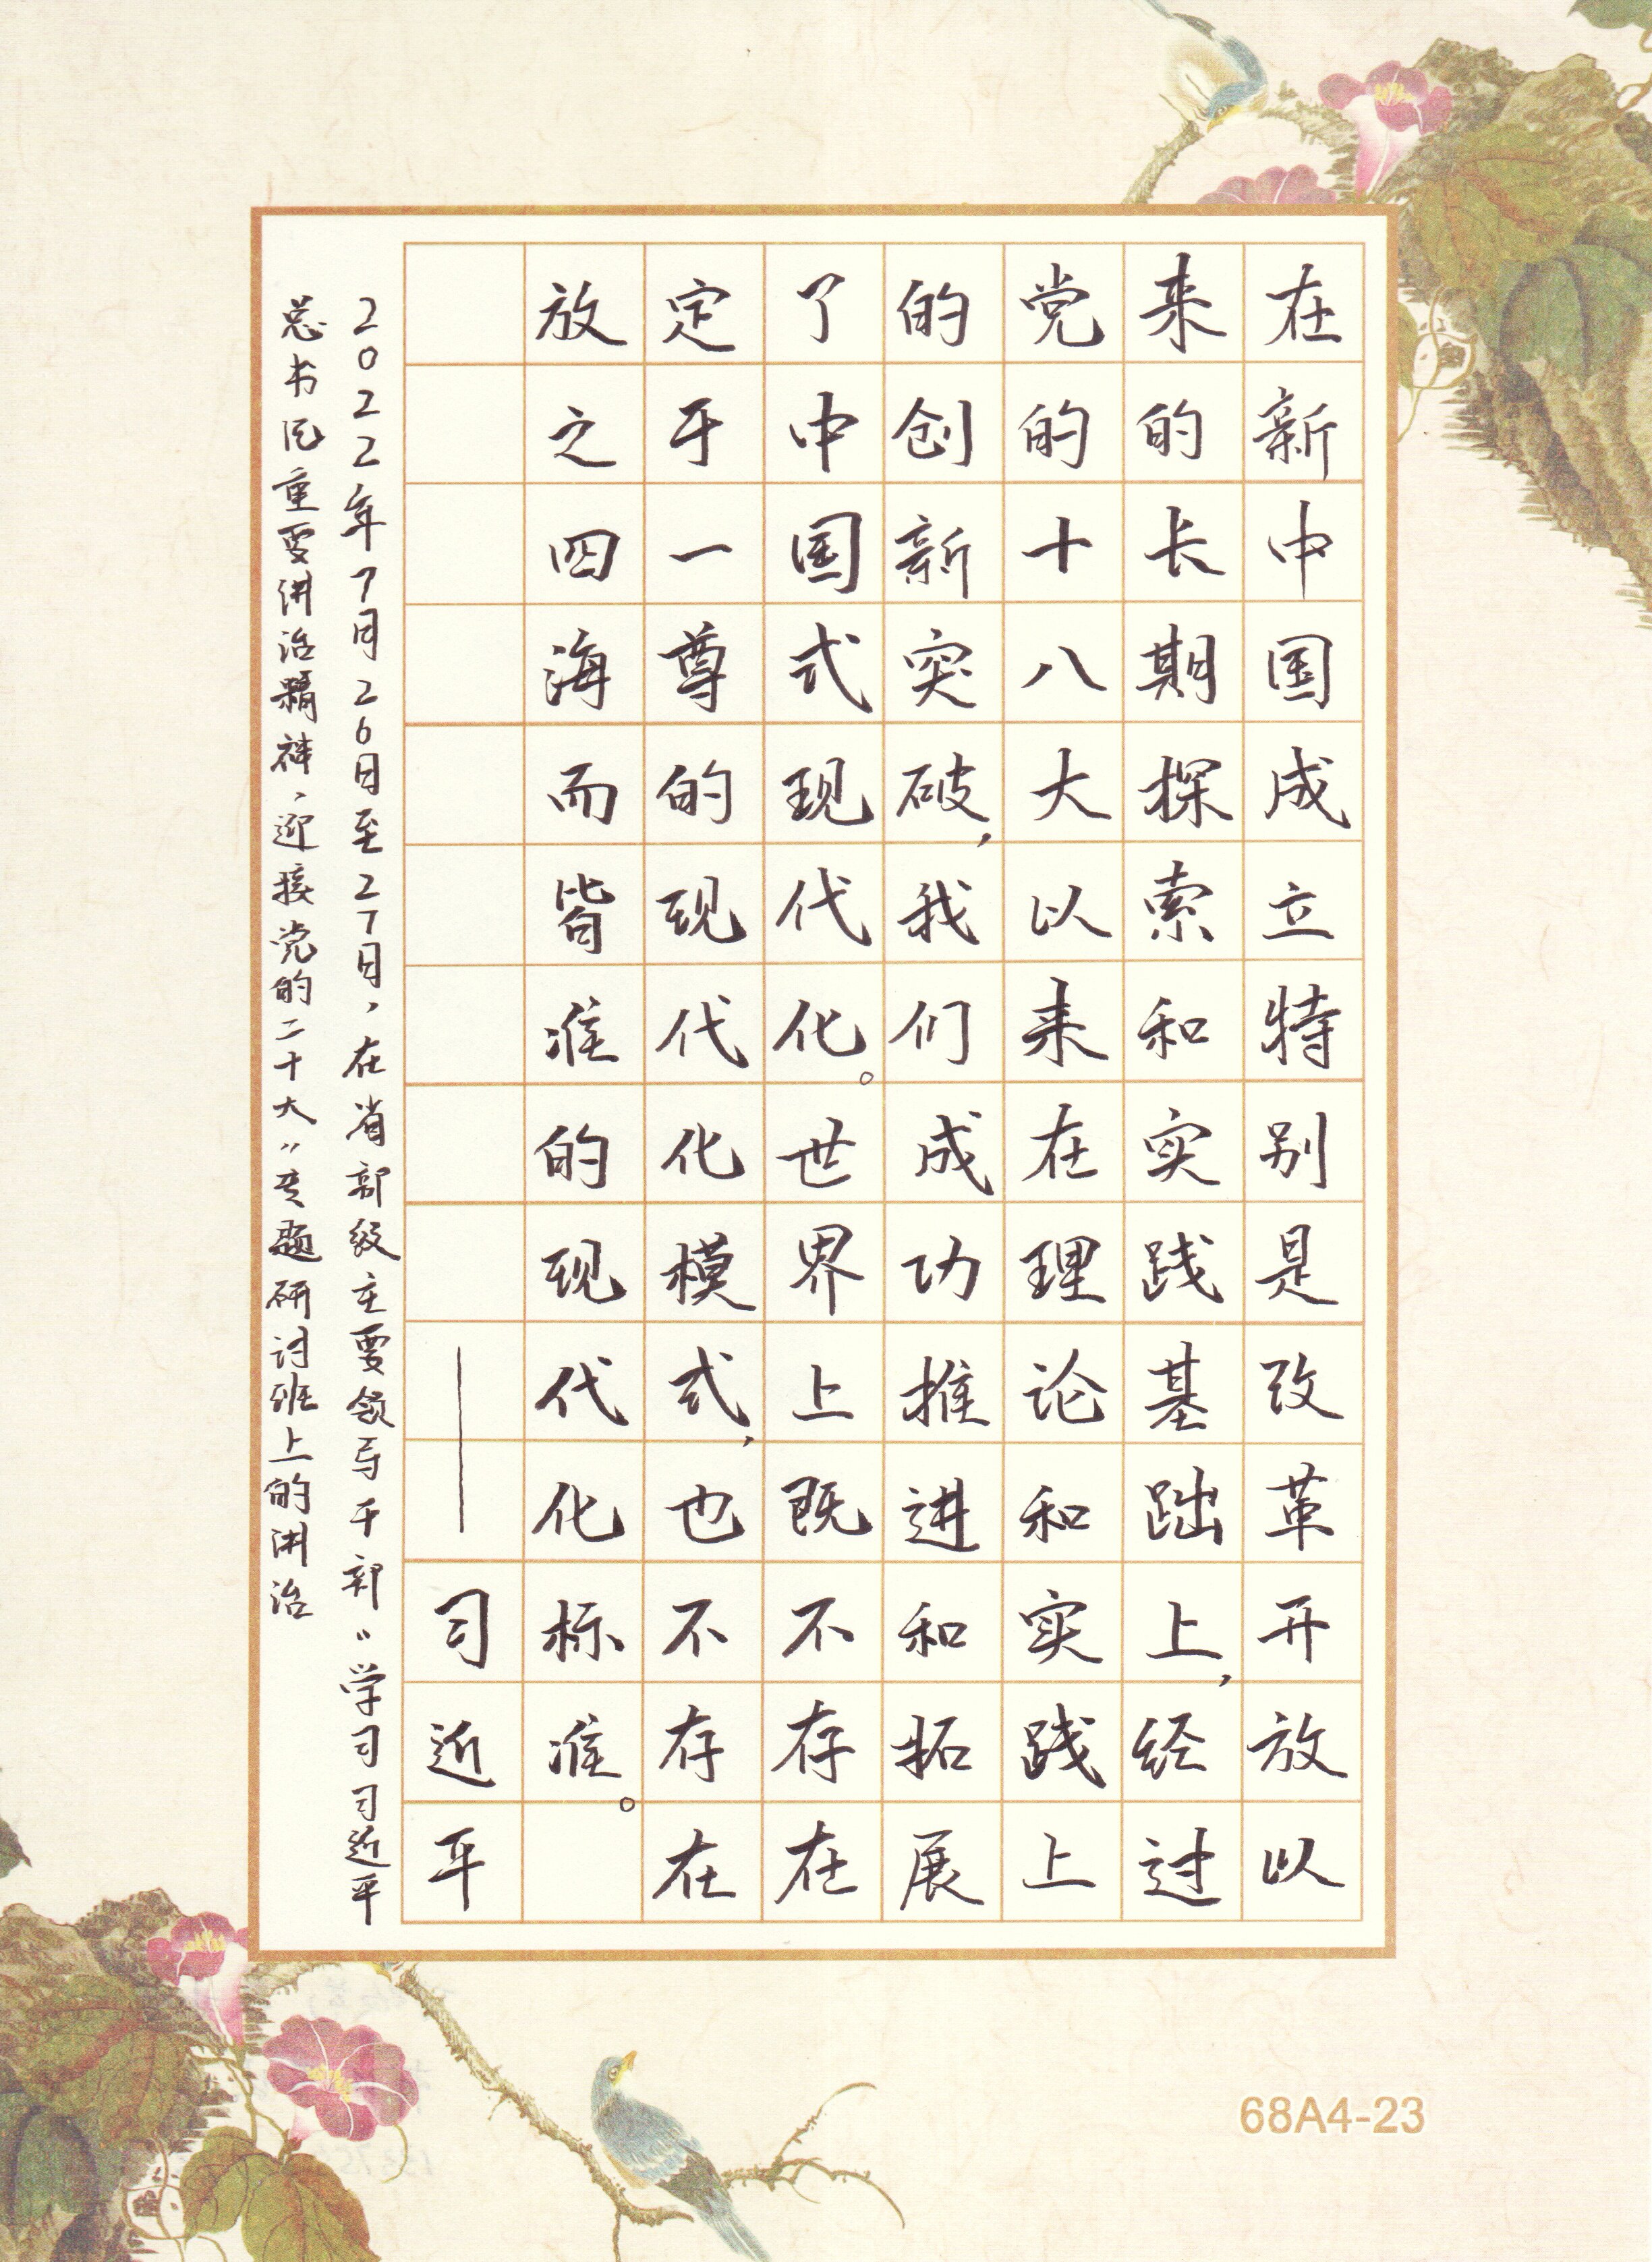 在新中国成立特别是改革开放以
来的长期探索和实践基础上，经过
党的十八大以来在理论和实践上
的创新突破，我们成功推进和拓展
了中国式现代化。世界上既不存在
定于一尊的现代化模式，也不存在
放之四海而皆准的现代化标准。
——习近平
2022年7月26日至27日，在省部级主要领导干部“学习习近平
总书记重要讲话精神，迎接党的二十大”专题研讨班上的讲话
68A4-23